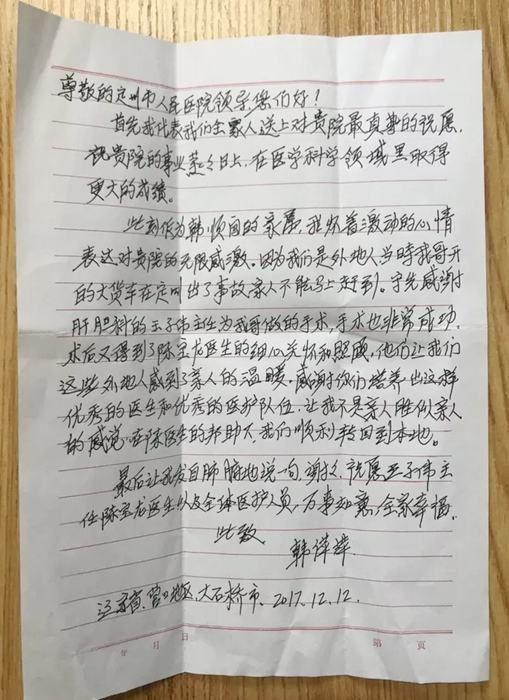 尊敬的定州市人民医院领导您们好！
首先我代表我们全家人送上对贵院最真挚的祝愿，
祝贵院的事业蒸蒸日上，在医学科学领域里取得
更大的成绩。
此刻作为韩顺国的家属，我怀着激动的心情
表达对贵院的无限感激。因为我们是外地人当时我哥开
的大货车在定州出了事故亲人不能马上赶到。首先感谢
肝胆科的王子伟主任为我哥做的手术，手术也非常成功，
术后又得到了陈宝龙医生的细心关怀和照顾，他们让我们
这些外地人感到了亲人的温暖，感谢你们培养出这样
优秀的医生和优秀的医护队伍，让我不是亲人胜似亲人
的感觉，在陈医生的帮助下我们顺利转回到本地。
最后让我发自肺腑地说一句，谢谢，祝愿王子伟主
任陈宝龙医生以及全体医护人员，万事如意，全家幸福。
此致
韩萍萍
辽宁省，营口地区，大石桥市，2017.12.12.
年 月 日 第 頁